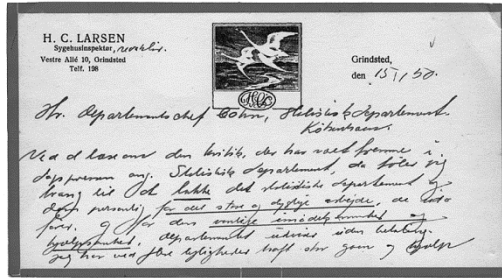 H. C. LARSEN
Sygehusinspektør,
Vestre Allé 10, Grindsted
Telf. 198
Grindsted,
den 15/1 50.
Hr. Departementschef Cohn, Statistisk Departement.
København.
Ved at læse om den kritik, der har været fremme i
dagspressen ang. Statistisk Departement, da føler jeg
trang til at takke det statistiske departement og
dem personlig for det store og dygtige arbejde, de
og for den
departementet udviser uden
jeg har ved flere lejligheder haft stor gavn og hjælp